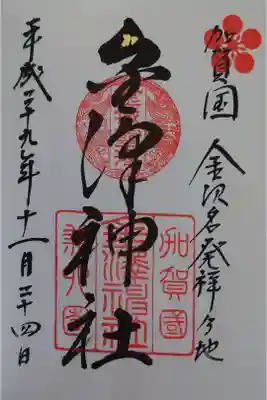 加賀国 金沢名発祥の地
金澤神社
加賀國
金澤神社
平成二十九年十一月二十四日